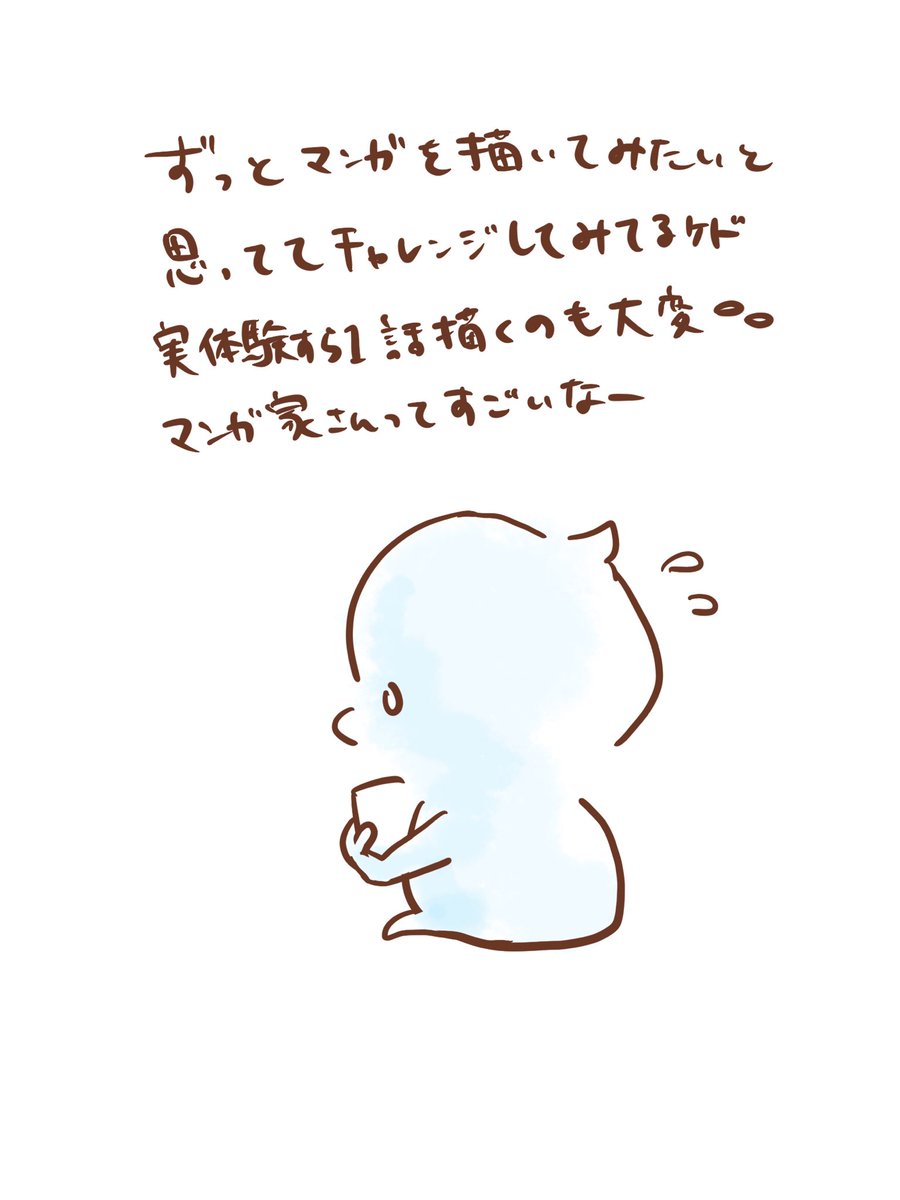 ずっとマンガを描いてみたいと
思っててチャレンジしてみてるケド
実体験すら1話描くのも大変。。
マンガ家さんってすごいなー